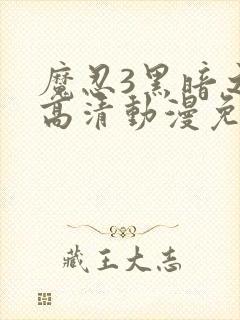 魔忍3黑暗
高清動漫免
藏王大志